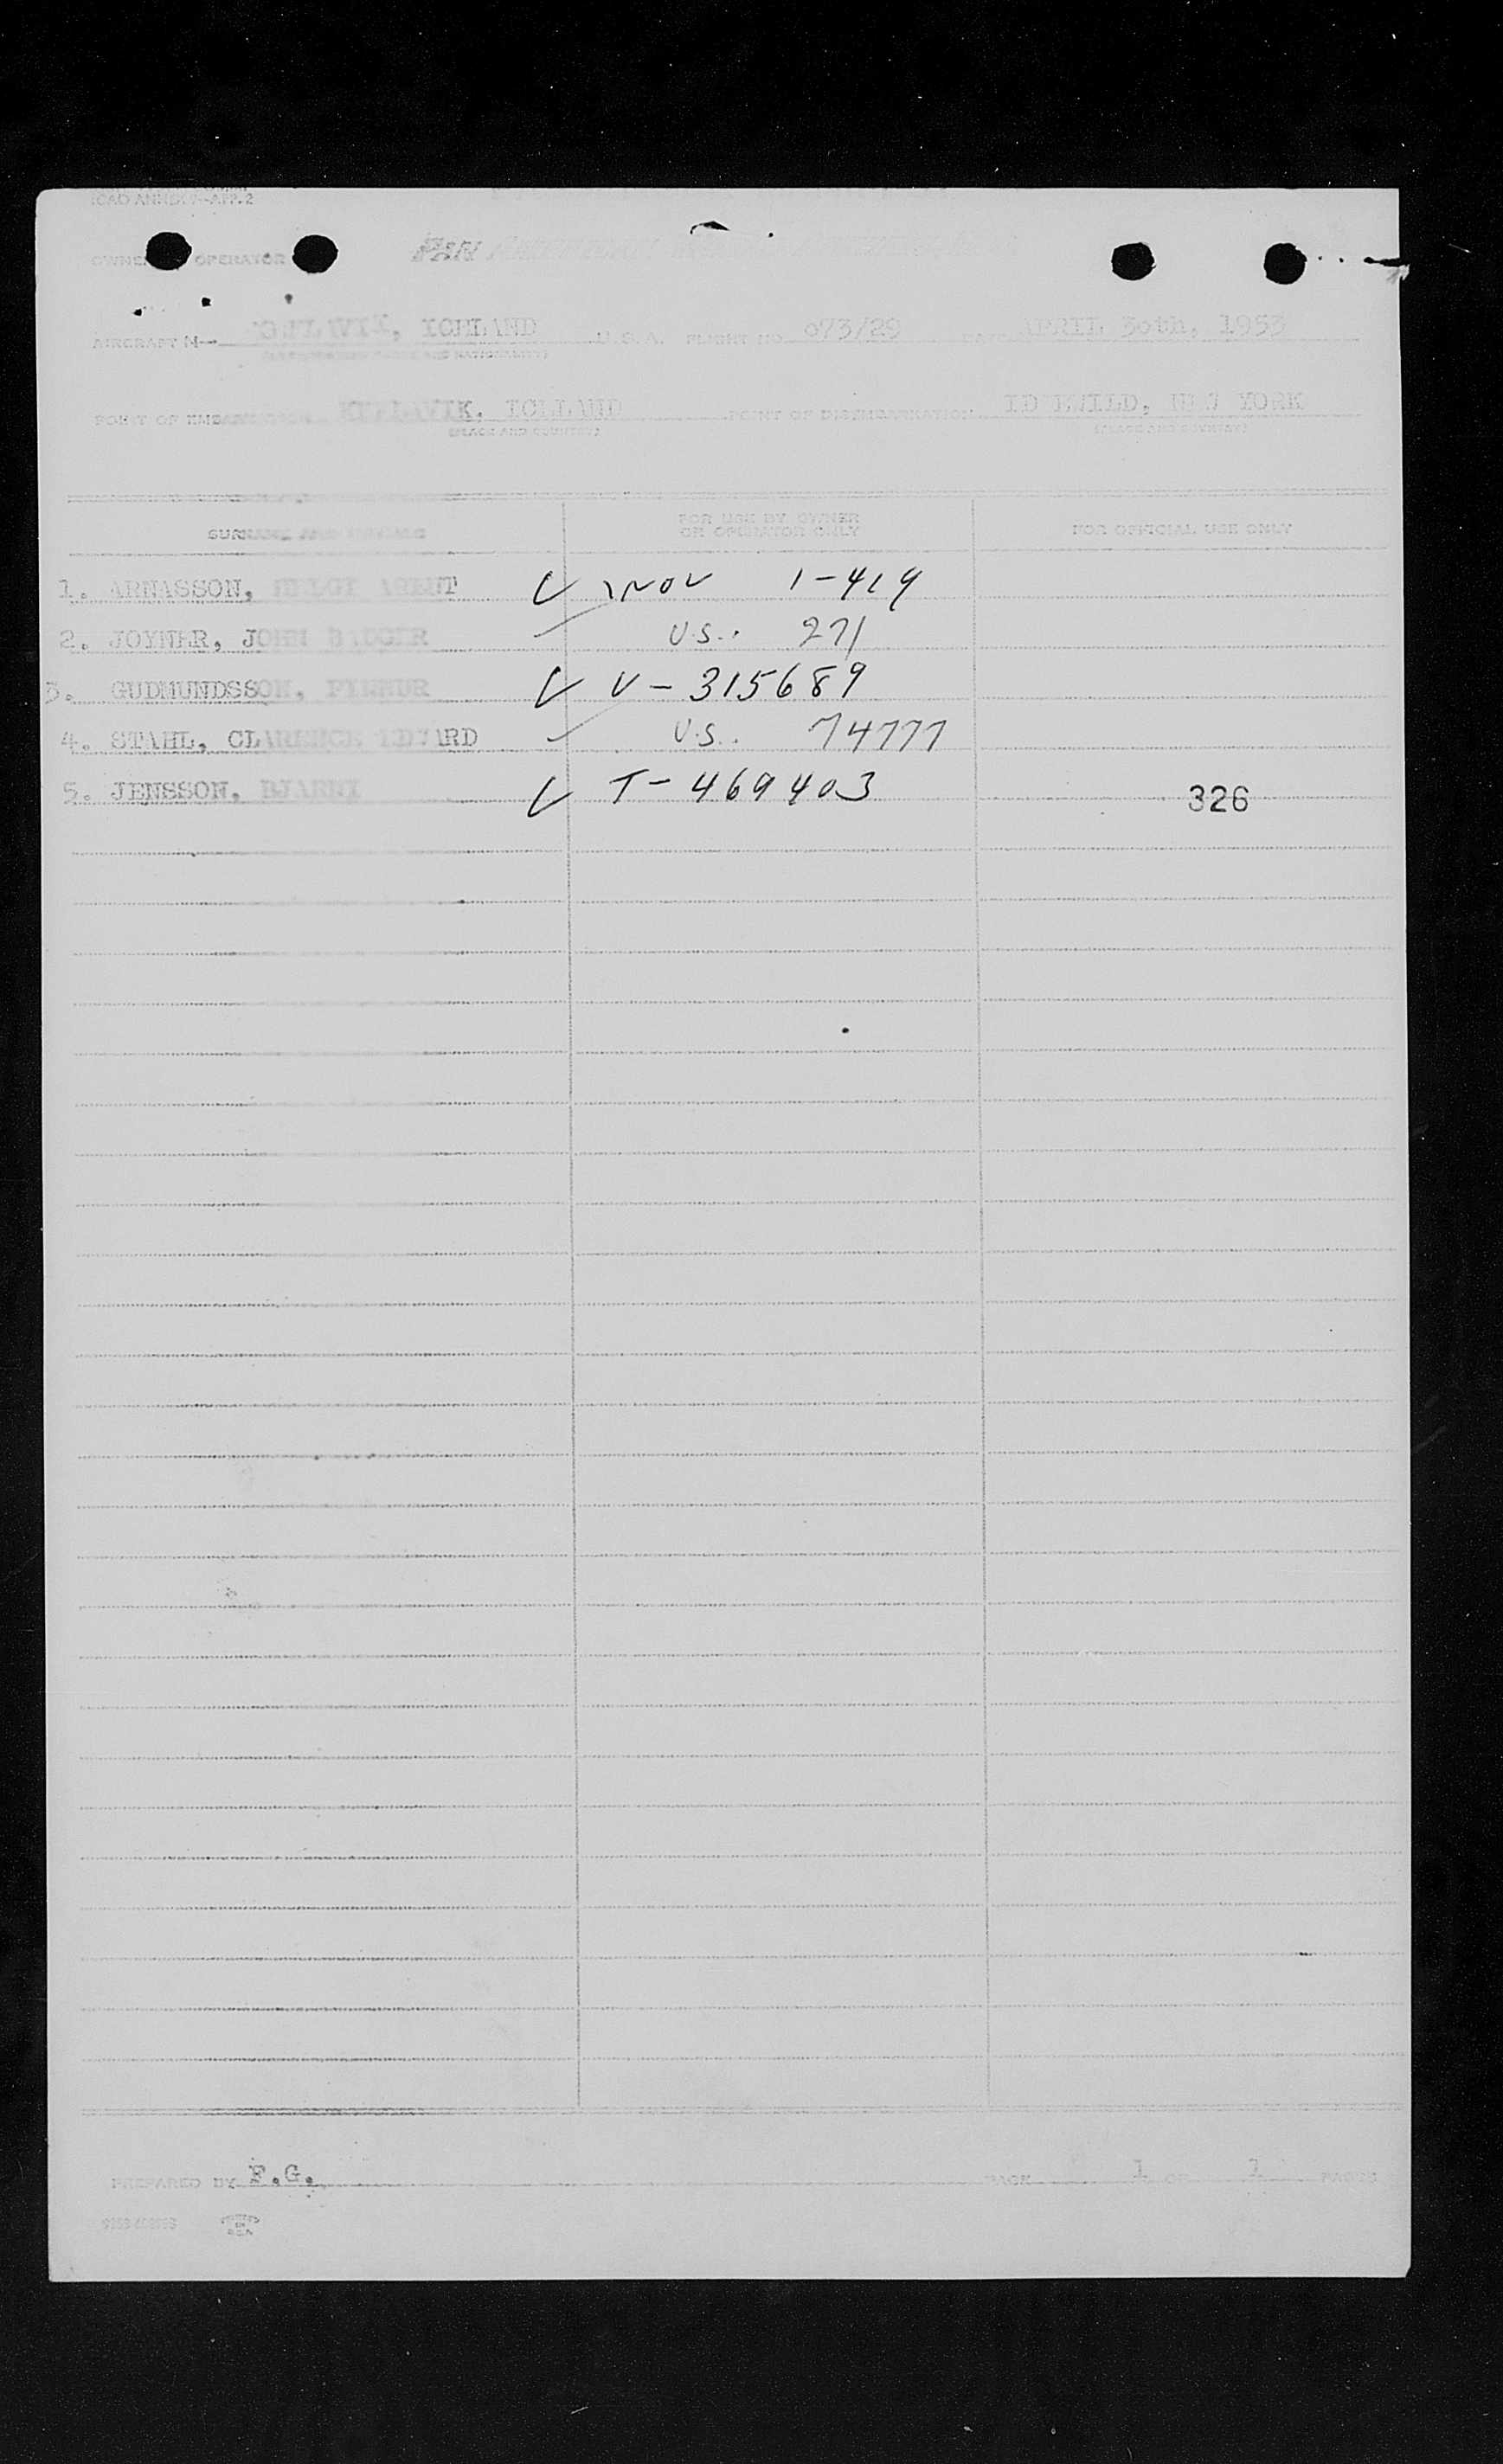 ICAO ANNEX 9-APP. 2
OWNER OPERATOR PAN AMERICAN
AIRCRAFT N- ICELAND U.S.A. FLIGHT NO. 073/29 DATE APRIL 30th, 1953
POINT OF EMBARKATION KEFLAVIK, ICELAND POINT OF DISEMBARKATION IDLEWILD, NEW YORK
(PLACE AND COUNTRY) (PLACE AND COUNTRY)
SURNAME AND INITIALS FOR USE BY OWNER OR OPERATOR ONLY FOR OFFICIAL USE ONLY
1. ARNASSON, HELGI ARENT 1-419
2. JOYNER, JOHN BADGER U.S. 271
3. GUDMUNDSSON, FINNUR V-315689
4. STAHL, CLARENCE EDWARD U.S. 74777
5. JENSSON, BJARNI T-469403 326
PREPARED BY F.G. PAGE 1 OF 1 PAGES
PRINTED IN U.S.A.